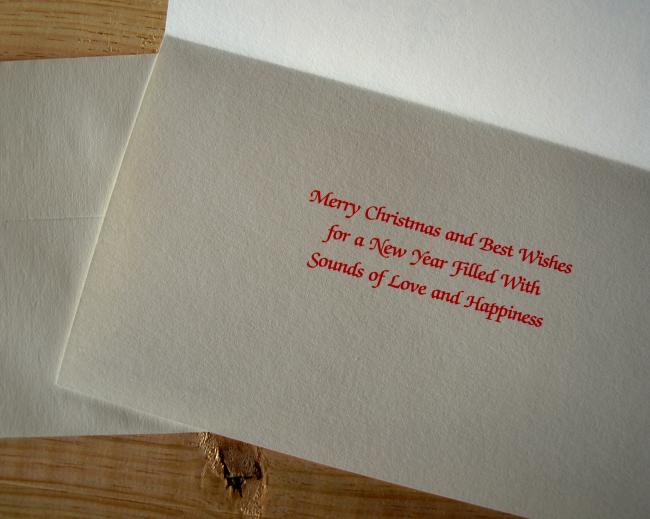 Merry Christmas and Best Wishes
for a New Year Filled With
Sounds of Love and Happiness